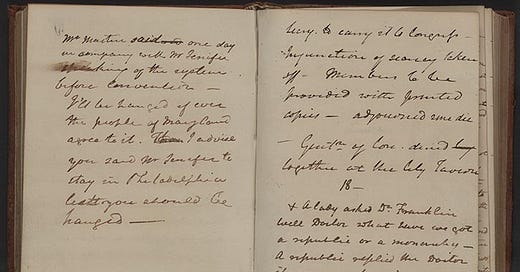 Mr Martin said one day
in company with Mr Jenifer
speaking of the system
before Convention —
I'll be hanged if ever
the people of Maryland
agree to it. I advise
you said Mr Jenifer to
stay in Philadelphia
lest you should be
hanged —
Secy. to carry it to Congress —
Injunction of secrecy taken
off — Members to be
provided with printed
copies — adjourned sine die
— Gentn. of Con. dined
together at the City Tavern
18 —
A lady asked Dr. Franklin
Well Doctor what have we got
a republic or a monarchy —
A republic replied the Doctor